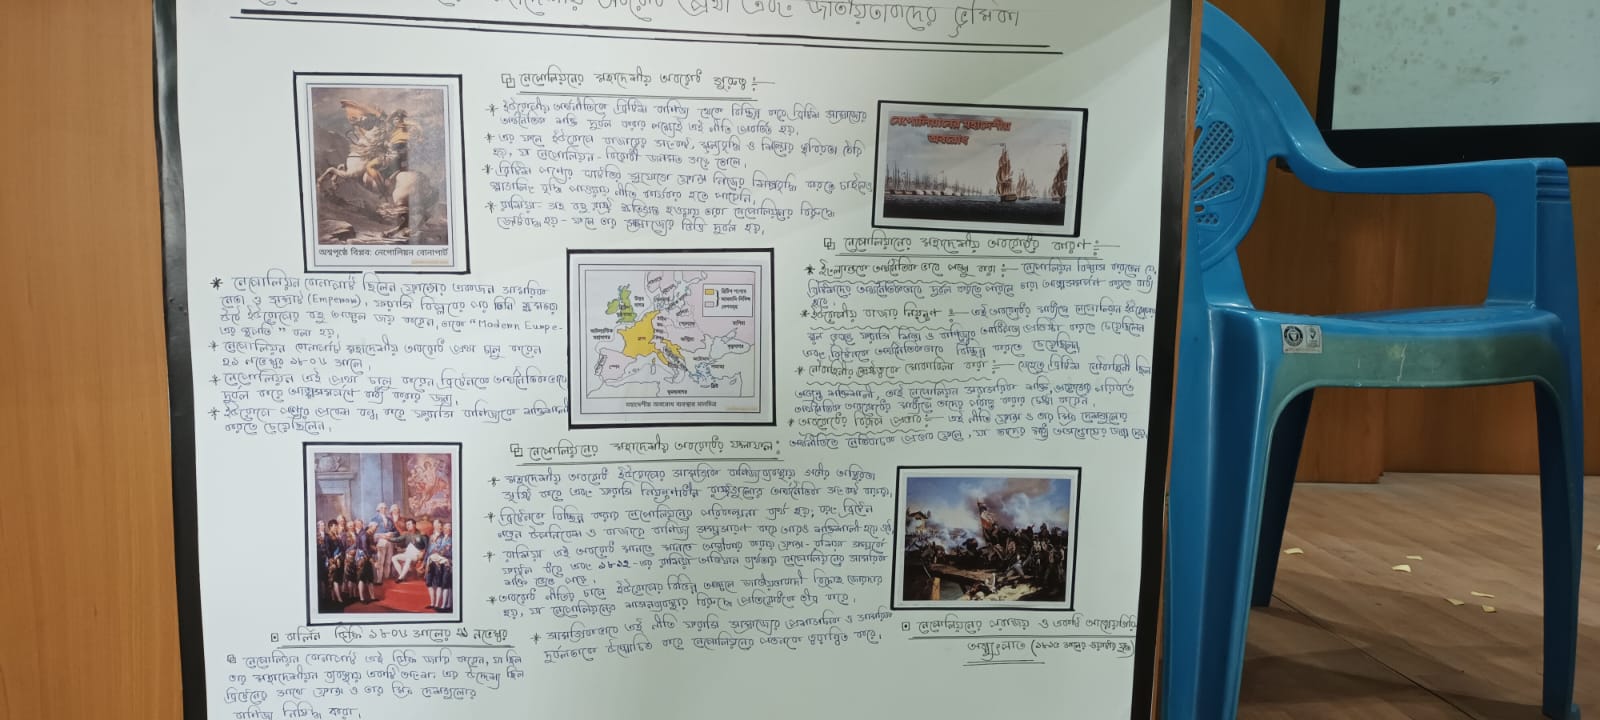 মহাদেশীয় অবরোধ প্রথা এবং জাতীয়তাবাদের ভূমিকা
নেপোলিয়নের মহাদেশীয় অবরোধ গুরুত্ব :-
* ইউরোপীয় অর্থনীতিকে ব্রিটিশ বাণিজ্য থেকে বিচ্ছিন্ন করে ব্রিটিশ সাম্রাজ্যের
অর্থনৈতিক শক্তি দুর্বল করার লক্ষ্যেই এই নীতি প্রবর্তিত হয়।
* এর ফলে ইউরোপে বাজারের সংকট, মূল্যবৃদ্ধি ও শিল্পের স্থবিরতা তৈরি
হয়, যা নেপোলিয়ন-বিরোধী জনমত গড়ে তোলে।
* ব্রিটিশ পণ্যের ঘাটতির সুযোগে ফ্রান্স নিজের শিল্পবৃদ্ধি করতে চাইলেও
বৃদ্ধি পাওয়ায় নীতি কার্যকর হতে পারেনি,
* রাশিয়া-সহ বহু রাষ্ট্র ক্ষতিগ্রস্ত হওয়ায় তারা নেপোলিয়নের বিরুদ্ধে
জোটবদ্ধ হয়- ফলে তার সাম্রাজ্যের ভিত্তি দুর্বল হয়।
অশ্বপৃষ্ঠে বিপ্লব: নেপোলিয়ন বোনাপার্ট
নেপোলিয়নের মহাদেশীয়
অবরোধ
* নেপোলিয়ন বোনাপার্ট ছিলেন ফ্রান্সের একজন সামরিক
নেতা ও সম্রাট (Emperor), ফরাসি বিপ্লবের পর তিনি ক্ষমতায়
উঠে ইউরোপের বহু অঞ্চল জয় করেন, তাকে "Modern Europe-
এর স্থপতি" বলা হয়।
* নেপোলিয়ন বোনাপার্ট মহাদেশীয় অবরোধ প্রথা চালু করেন
২১ নভেম্বর ১৮০৬ সালে।
* নেপোলিয়ন এই প্রথা চালু করেন ব্রিটেনকে অর্থনৈতিকভাবে
দুর্বল করে আত্মসমর্পণে বাধ্য করার জন্য।
* ইউরোপে পণ্যের প্রবেশ বন্ধ করে ফরাসি বাণিজ্যকে শক্তিশালী
করতে চেয়েছিলেন।
মহাদেশীয় অবরোধ ব্যবস্থার মানচিত্র
নেপোলিয়নের মহাদেশীয় অবরোধের কারণ :-
* ইংল্যান্ডকে অর্থনৈতিক ভাবে পঙ্গু করা :- নেপোলিয়ন বিশ্বাস করতেন যে,
ব্রিটেনকে অর্থনৈতিকভাবে দুর্বল করতে পারলে তারা আত্মসমর্পণ করতে বাধ্য
হবে।
* ইউরোপীয় বাজার নিয়ন্ত্রণ :- এই অবরোধের মাধ্যমে নেপোলিয়ন ইউরোপের
মূল ভূখণ্ডে ফরাসি শিল্প ও বাণিজ্যের আধিপত্য প্রতিষ্ঠা করতে চেয়েছিলেন
এবং ব্রিটেনকে অর্থনৈতিকভাবে বিচ্ছিন্ন করতে চেয়েছিলেন
* নৌবাহিনীর শ্রেষ্ঠত্বকে মোকাবিলা করা :- যেহেতু ব্রিটিশ নৌবাহিনী ছিল
অত্যন্ত শক্তিশালী, তাই নেপোলিয়ন সরাসরি শক্তি প্রয়োগের পরিবর্তে
অর্থনৈতিক অবরোধের মাধ্যমে তাদের পরাস্ত করার চেষ্টা করেন।
* অবরোধের বিরূপ প্রভাব :- এই নীতি ফ্রান্স ও তার মিত্র দেশগুলোর
অর্থনীতিতে নেতিবাচক প্রভাব ফেলে, যা তাদের মধ্যে অসন্তোষের জন্ম দেয়
নেপোলিয়নের মহাদেশীয় অবরোধের ফলাফল :
* মহাদেশীয় অবরোধ ইউরোপের সামগ্রিক বাণিজ্যব্যবস্থায় গভীর অস্থিরতা
সৃষ্টি করে এবং ফরাসি নিয়ন্ত্রণাধীন রাষ্ট্রগুলোর অর্থনৈতিক সংকট বাড়ায়,
* ব্রিটেনকে বিচ্ছিন্ন করার নেপোলিয়নের পরিকল্পনা ব্যর্থ হয়; বরং ব্রিটেন
নতুন উপনিবেশ ও বাজারে বাণিজ্য সম্প্রসারণ করে আরও শক্তিশালী হয়ে ওঠে,
* রাশিয়া এই অবরোধ মানতে অস্বীকার করায় ফ্রান্স-রাশিয়া সম্পর্কে
ফাটল ধরে এবং ১৮১২-এর রাশিয়া অভিযান ব্যর্থতায় নেপোলিয়নের সামরিক
শক্তি ভেঙে পড়ে।
* অবরোধ নীতির চাপে ইউরোপের বিভিন্ন অঞ্চলে জাতীয়তাবাদী বিক্ষোভ জোরদার
হয়, যা নেপোলিয়নের শাসনব্যবস্থার বিরুদ্ধে প্রতিরোধকে তীব্র করে।
* সামগ্রিকভাবে এই নীতি ফরাসি সাম্রাজ্যের প্রশাসনিক ও সামরিক
দুর্বলতাকে উন্মোচিত করে নেপোলিয়নের পতনকে ত্বরান্বিত করে।
বার্লিন ডিক্রি ১৮০৬ সালের ২১ নভেম্বর
নেপোলিয়ন বোনাপার্ট এই ডিক্রি জারি করেন, যা ছিল
তার মহাদেশীয় ব্যবস্থার একটি অংশ। এর উদ্দেশ্য ছিল
ব্রিটেনের সাথে ফ্রান্স ও তার মিত্র দেশগুলোর
বাণিজ্য নিষিদ্ধ করা।
নেপোলিয়নের পরাজয় ও একটি সাম্রাজ্যের
(১৮১৫ সালের ওয়াটারলু যুদ্ধ)